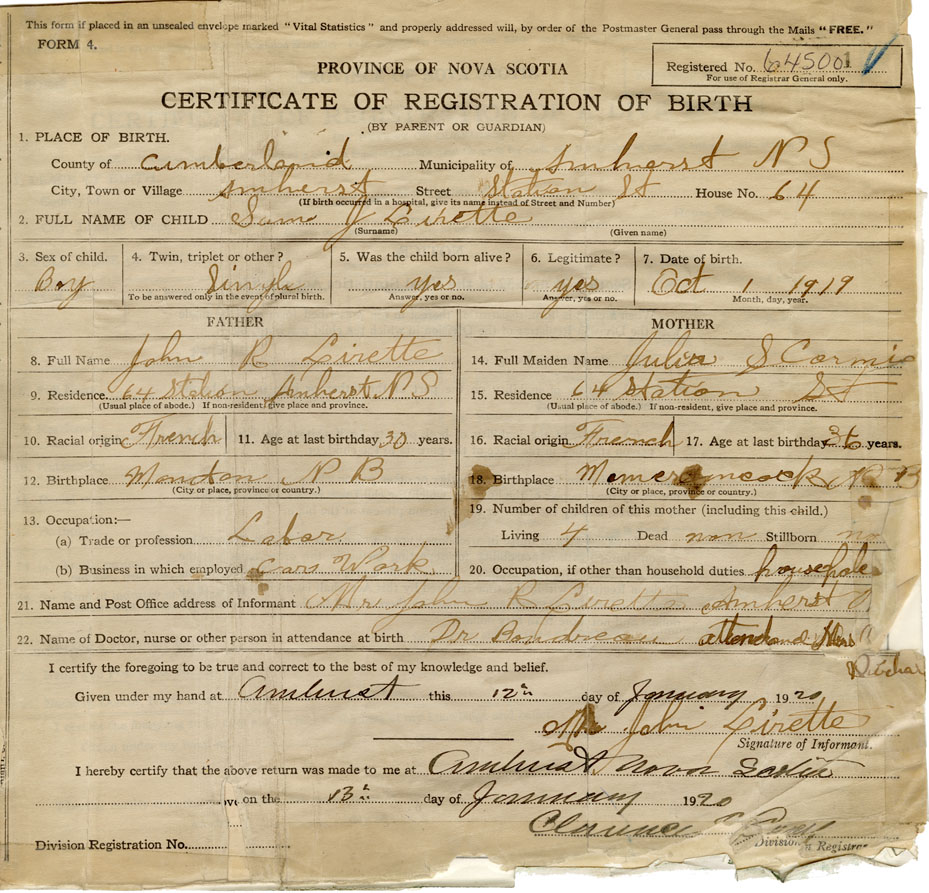 This form if placed in an unsealed envelope marked "Vital Statistics" and properly addressed will, by order of the Postmaster General pass through the Mails "FREE."
FORM 4.
Registered No. 645001
For use of Registrar General only.
PROVINCE OF NOVA SCOTIA
CERTIFICATE OF REGISTRATION OF BIRTH
(BY PARENT OR GUARDIAN)
1. PLACE OF BIRTH.
County of Cumberland Municipality of Amherst N S
City, Town or Village Amherst Street Station St House No. 64
(If birth occurred in a hospital, give its name instead of Street and Number)
2. FULL NAME OF CHILD J Lirette
(Surname) (Given name)
3. Sex of child. 4. Twin, triplet or other? 5. Was the child born alive? 6. Legitimate? 7. Date of birth.
Boy Single yes yes Oct 1 1919
To be answered only in the event of plural birth. Answer, yes or no. Answer, yes or no. Month, day, year.
FATHER MOTHER
8. Full Name John R Lirette 14. Full Maiden Name Julia S Cormi
9. Residence 64 Station Amherst N S 15. Residence 64 Station St
(Usual place of abode.) If non-resident, give place and province. (Usual place of abode.) If non-resident, give place and province.
10. Racial origin French 11. Age at last birthday 30 years. 16. Racial origin French 17. Age at last birthday 36 years.
12. Birthplace Moncton N B 18. Birthplace N B
(City or place, province or country.) (City or place, province or country.)
13. Occupation:— 19. Number of children of this mother (including this child.)
(a) Trade or profession Labor Living 4 Dead non Stillborn no
(b) Business in which employed cars Work 20. Occupation, if other than household duties
21. Name and Post Office address of Informant Mr John R Lirette Amherst
22. Name of Doctor, nurse or other person in attendance at birth Dr Boudreau
I certify the foregoing to be true and correct to the best of my knowledge and belief.
Given under my hand at Amherst this 12th day of January 1920
John Lirette
Signature of Informant.
I hereby certify that the above return was made to me at Amherst Nova Scotia
on the 13th day of January 1920
Clarence
Division Registrar
Division Registration No.